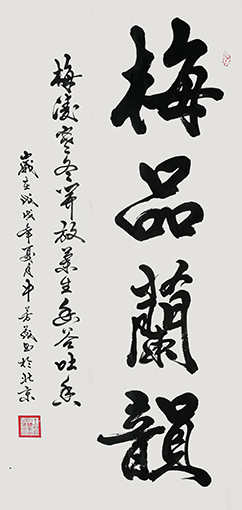 梅品蘭韻
梅凌寒冬開放葉生幽谷吐香
歲在戊戌年夏月牛芳義書於北京